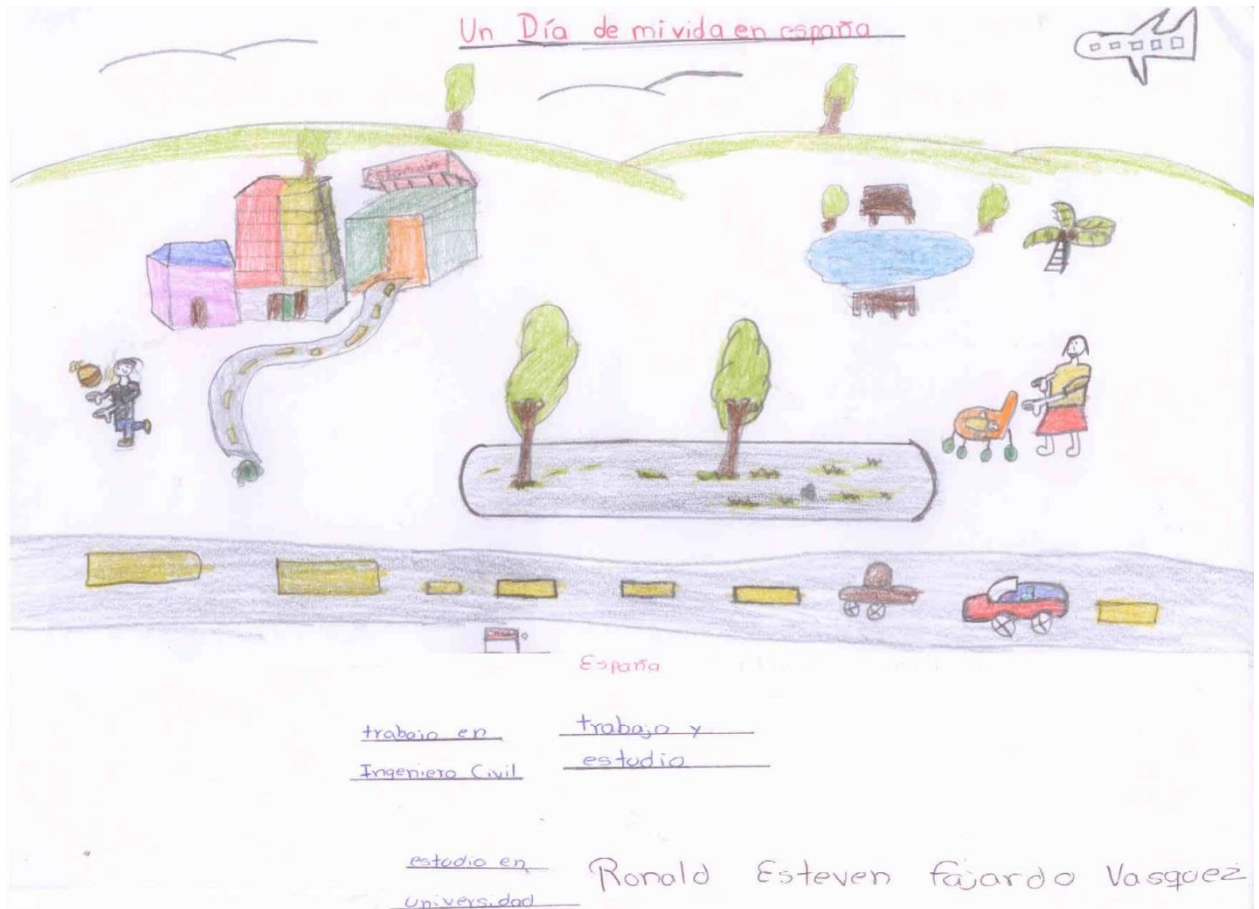 Un Día de mi vida en españa
España
trabajo en
Ingeniero Civil
trabajo y
estudio
estudio en
universidad
Ronald Esteven Fajardo Vasquez